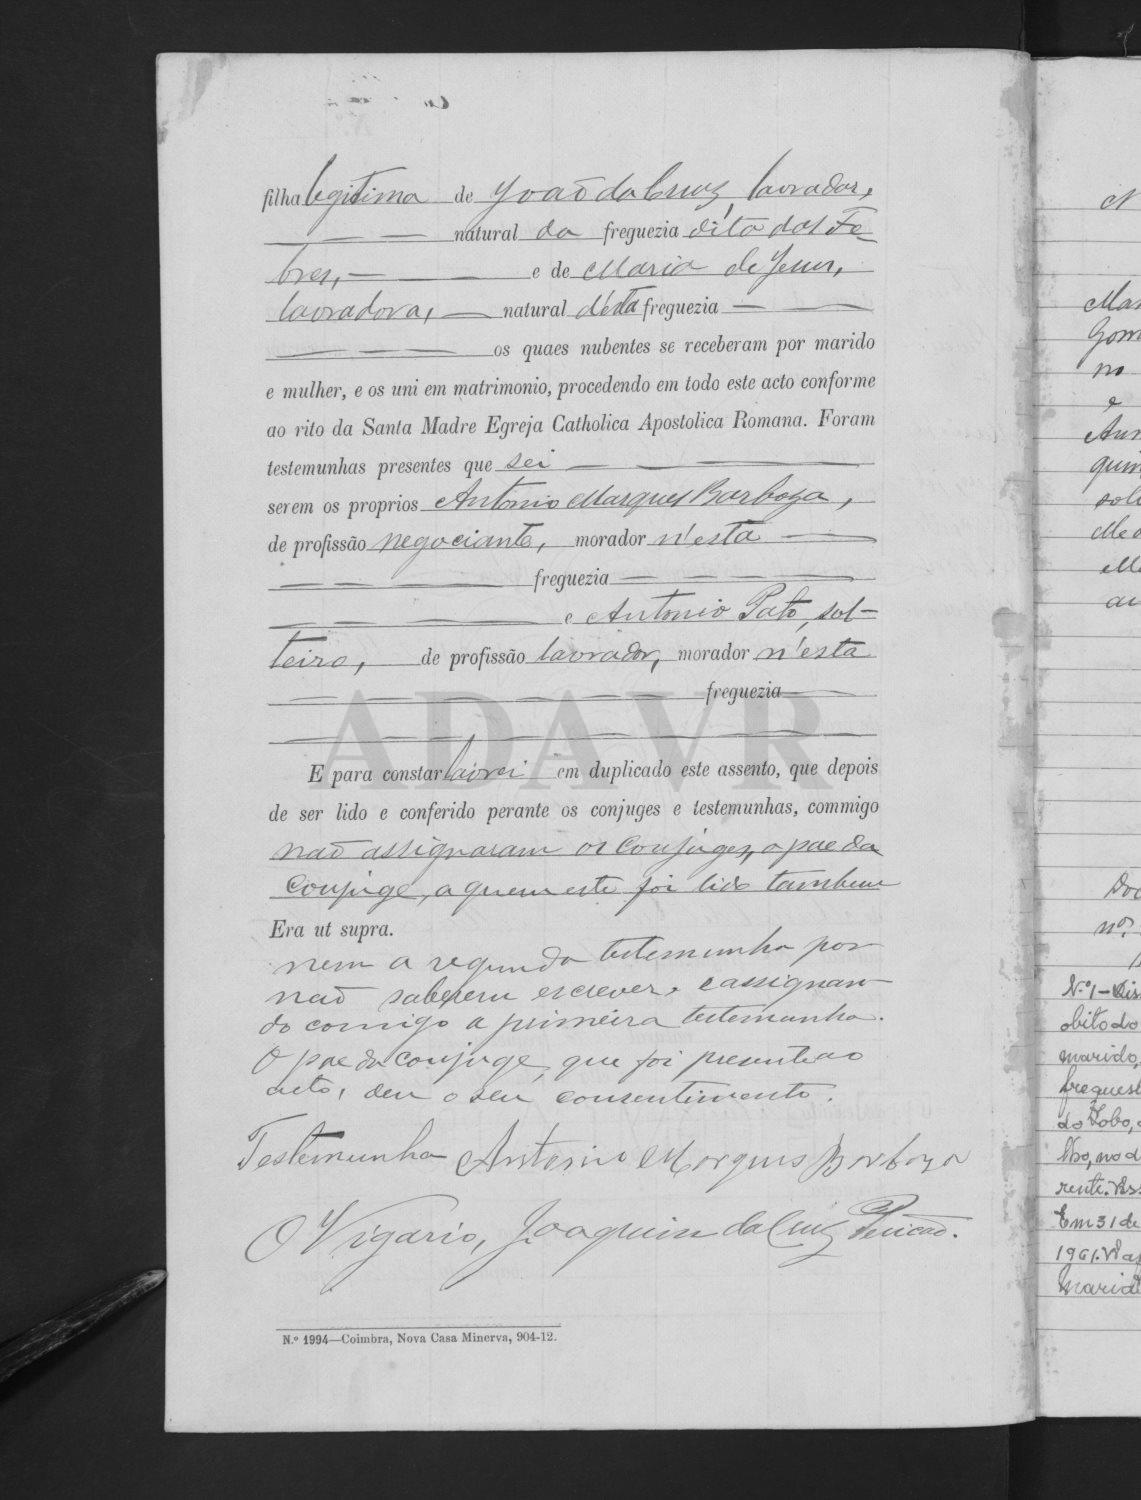 filha legitima de João da Cruz, lavrador,
— — — natural da freguezia dita das Fe-
bres, — — e de Maria de Jesus,
lavradora, — natural d'ésta freguezia — —
— — — os quaes nubentes se receberam por marido
e mulher, e os uni em matrimonio, procedendo em todo este acto conforme
ao rito da Santa Madre Egreja Catholica Apostolica Romana. Foram
testemunhas presentes que sei — — —
serem os proprios Antonio Marques Barboza,
de profissão negociante, morador n'esta — —
— — — — freguezia — — — —
— — — — e Antonio Pato, sol-
teiro, de profissão lavrador, morador n'esta
— — — — — freguezia — —
ADAVR
E para constar lavrei em duplicado este assento, que depois
de ser lido e conferido perante os conjuges e testemunhas, commigo
não assignaram os conjuges, o pae da
conjuge, a quem este foi lido tambem
Era ut supra.
nem a segunda testemunha por
não saberem escrever, e assignan-
do comigo a primeira testemunha.
O pae da conjuge, que foi presente ao
acto, deu o seu consentimento.
Testemunha Antonio Marques Barboza
O Vigario, Joaquim da Cruz
N.º 1994—Coimbra, Nova Casa Minerva, 904-12.
N
Mar
Gom
no
e
quin
solt
Ma
au
Doc
nº.
N.º 1 - Dis
obito do
marido,
freguesi
do Lobo,
lho, no d
rente.
Em 31 de
1961.
marid